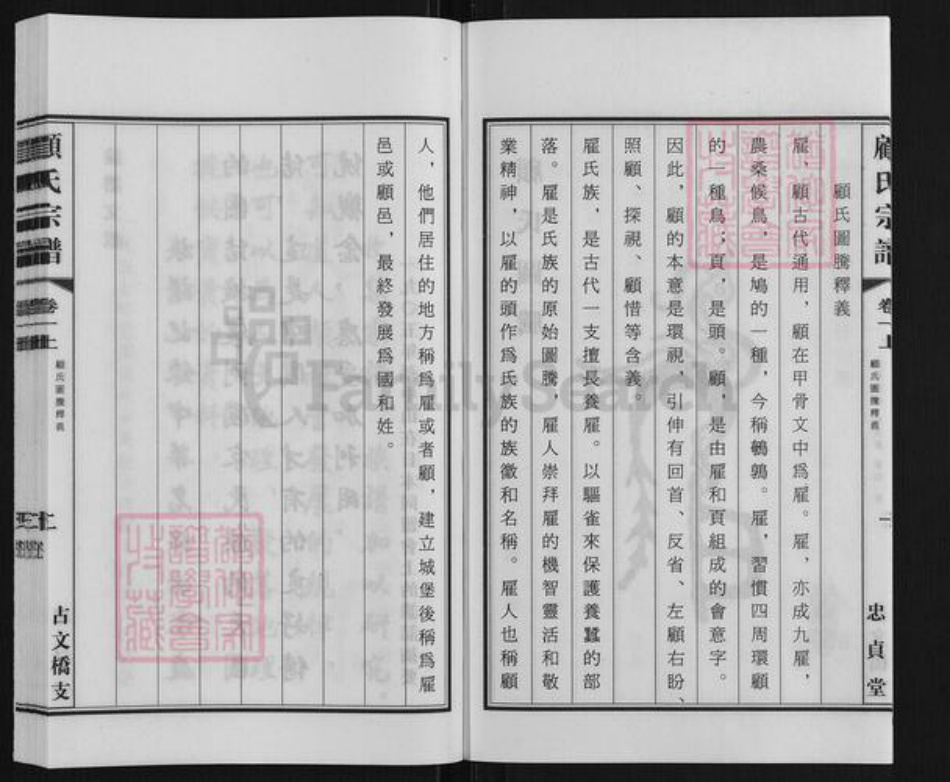 顧氏宗譜
卷一上
顧氏圖騰釋義
忠貞堂
顧氏圖騰釋義
雇、顧古代通用，顧在甲骨文中爲雇。雇，亦成九雇，
農桑候鳥，是鳩的一種，今稱鵪鶉。雇，習慣四周環顧
的一種鳥；頁，是頭。顧，是由雇和頁組成的會意字。
因此，顧的本意是環視，引伸有回首、反省、左顧右盼、
照顧、探視、顧惜等含義。
雇氏族，是古代一支擅長養雇。以驅雀來保護養蠶的部
落。雇是氏族的原始圖騰，雇人崇拜雇的機智靈活和敬
業精神，以雇的頭作爲氏族的族徽和名稱。雇人也稱顧
人，他們居住的地方稱爲雇或者顧，建立城堡後稱爲雇
邑或顧邑，最終發展爲國和姓。
顧氏宗譜
卷一上
顧氏圖騰釋義
古文橋支
FamilySearch